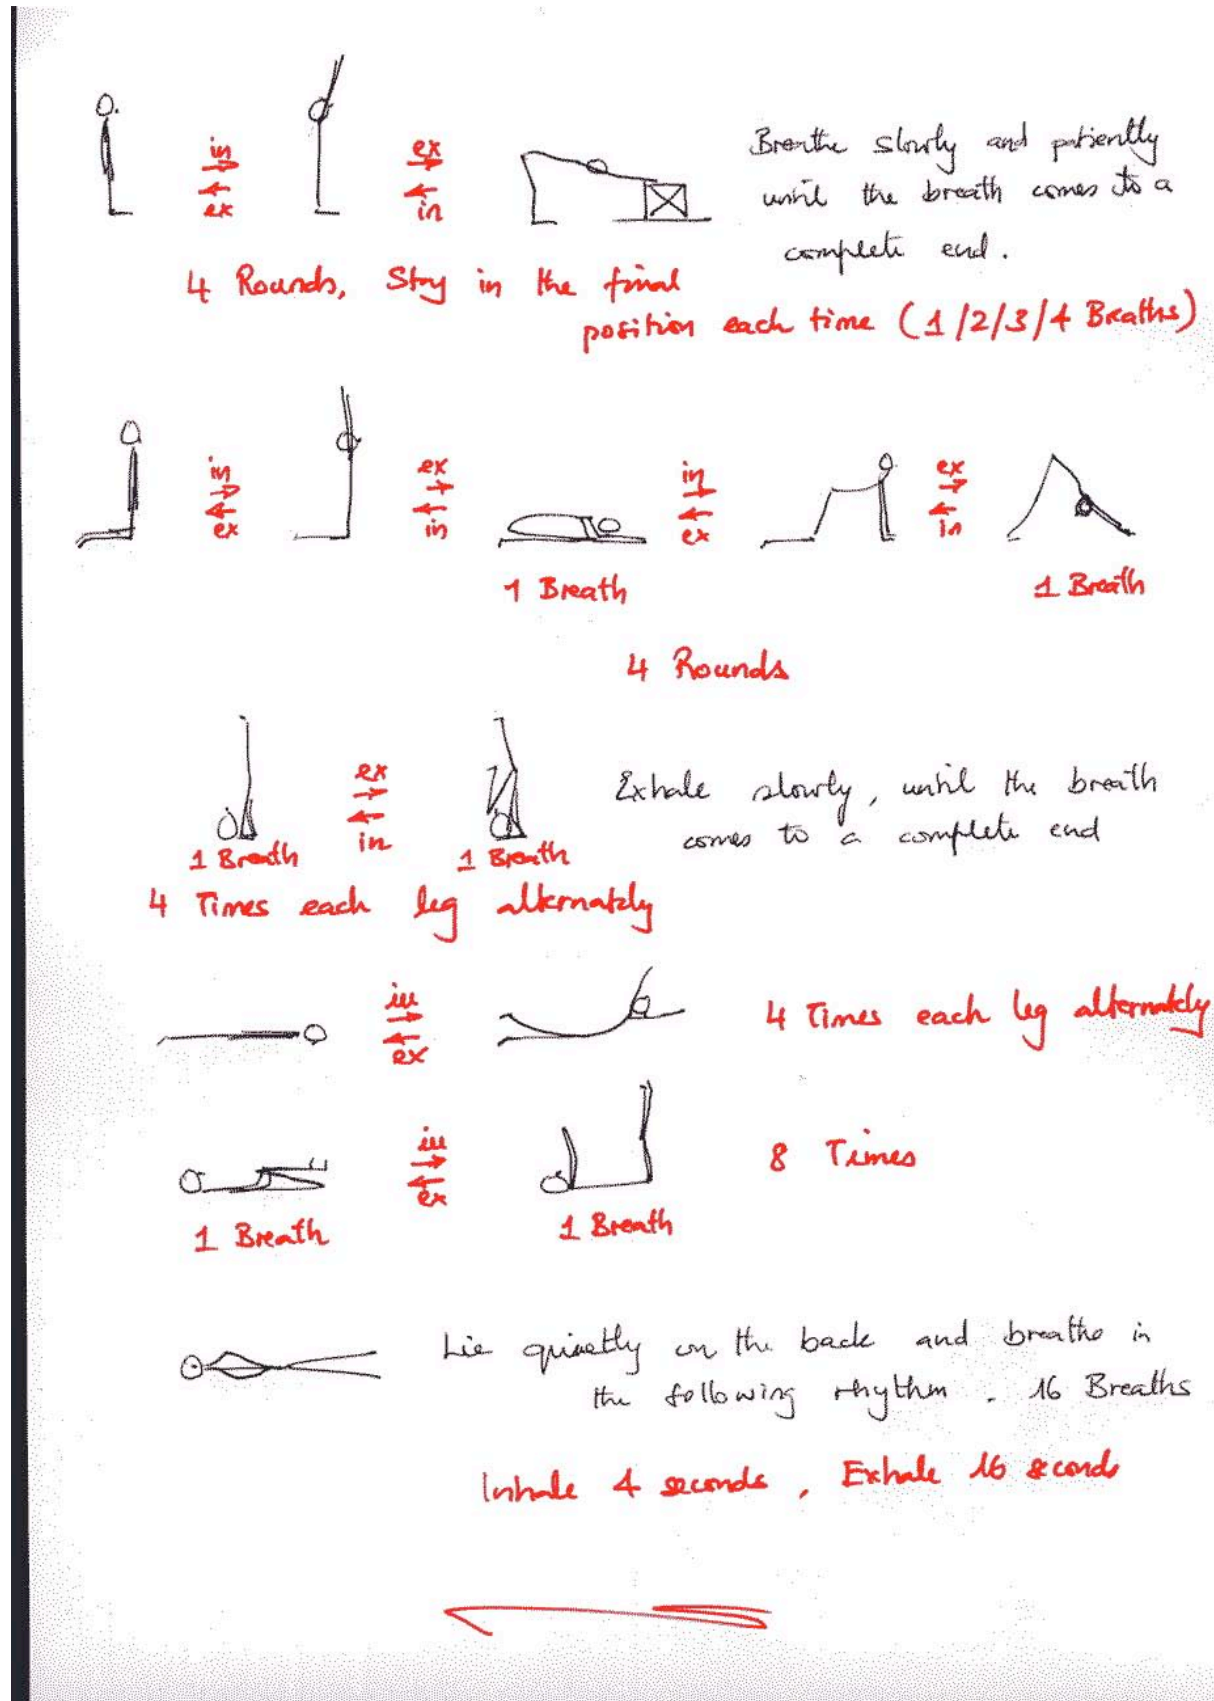 in
ex
ex
in
Breathe slowly and patiently
until the breath comes to a
complete end.
4 Rounds, Stay in the final
position each time (1/2/3/4 Breaths)
in
ex
ex
in
in
ex
ex
in
1 Breath
1 Breath
4 Rounds
ex
in
1 Breath
1 Breath
Exhale slowly, until the breath
comes to a complete end
4 Times each leg alternately
in
ex
4 Times each leg alternately
in
ex
1 Breath
1 Breath
8 Times
Lie quietly on the back and breathe in
the following rhythm. 16 Breaths
Inhale 4 seconds, Exhale 16 seconds